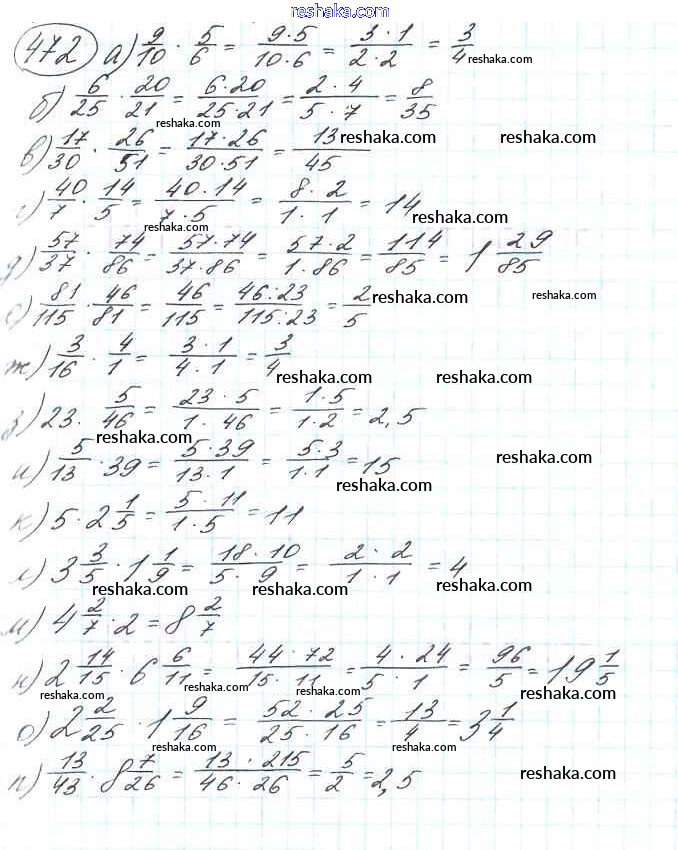 reshaka.ru
472 а) 9/10 · 5/6 = 9·5/10·6 = 3·1/2·2 = 3/4 reshaka.com
б) 6/25 · 20/21 = 6·20/25·21 = 2·4/5·7 = 8/35
reshaka.com
в) 17/30 · 26/51 = 17·26/30·51 = 13/45 reshaka.com reshaka.com
reshaka.com
г) 40/7 · 14/5 = 40·14/7·5 = 8·2/1·1 = 14 reshaka.com
reshaka.com
д) 57/37 · 74/86 = 57·74/37·86 = 57·2/1·86 = 114/85 = 1 29/85
е) 81/115 · 46/81 = 46/115 = 46:23/115:23 = 2/5 reshaka.com reshaka.com
reshaka.com
ж) 3/16 · 4/1 = 3·1/4·1 = 3/4 reshaka.com reshaka.com
з) 23 · 5/46 = 23·5/1·46 = 1·5/1·2 = 2,5
reshaka.com
и) 5/13 · 39 = 5·39/13·1 = 5·3/1·1 = 15 reshaka.com
reshaka.com
к) 5 · 2 1/5 = 5·11/1·5 = 11
л) 3 3/5 · 1 1/9 = 18·10/5·9 = 2·2/1·1 = 4
reshaka.com reshaka.com reshaka.com
м) 4 2/7 · 2 = 8 2/7
н) 2 14/15 · 6 6/11 = 44·72/15·11 = 4·24/5·1 = 96/5 = 19 1/5
reshaka.com reshaka.com reshaka.com
о) 2 2/25 · 1 9/16 = 52·25/25·16 = 13/4 = 3 1/4
reshaka.com reshaka.com reshaka.com
п) 13/43 · 8 7/26 = 13·215/46·26 = 5/2 = 2,5 reshaka.com
reshaka.com reshaka.com